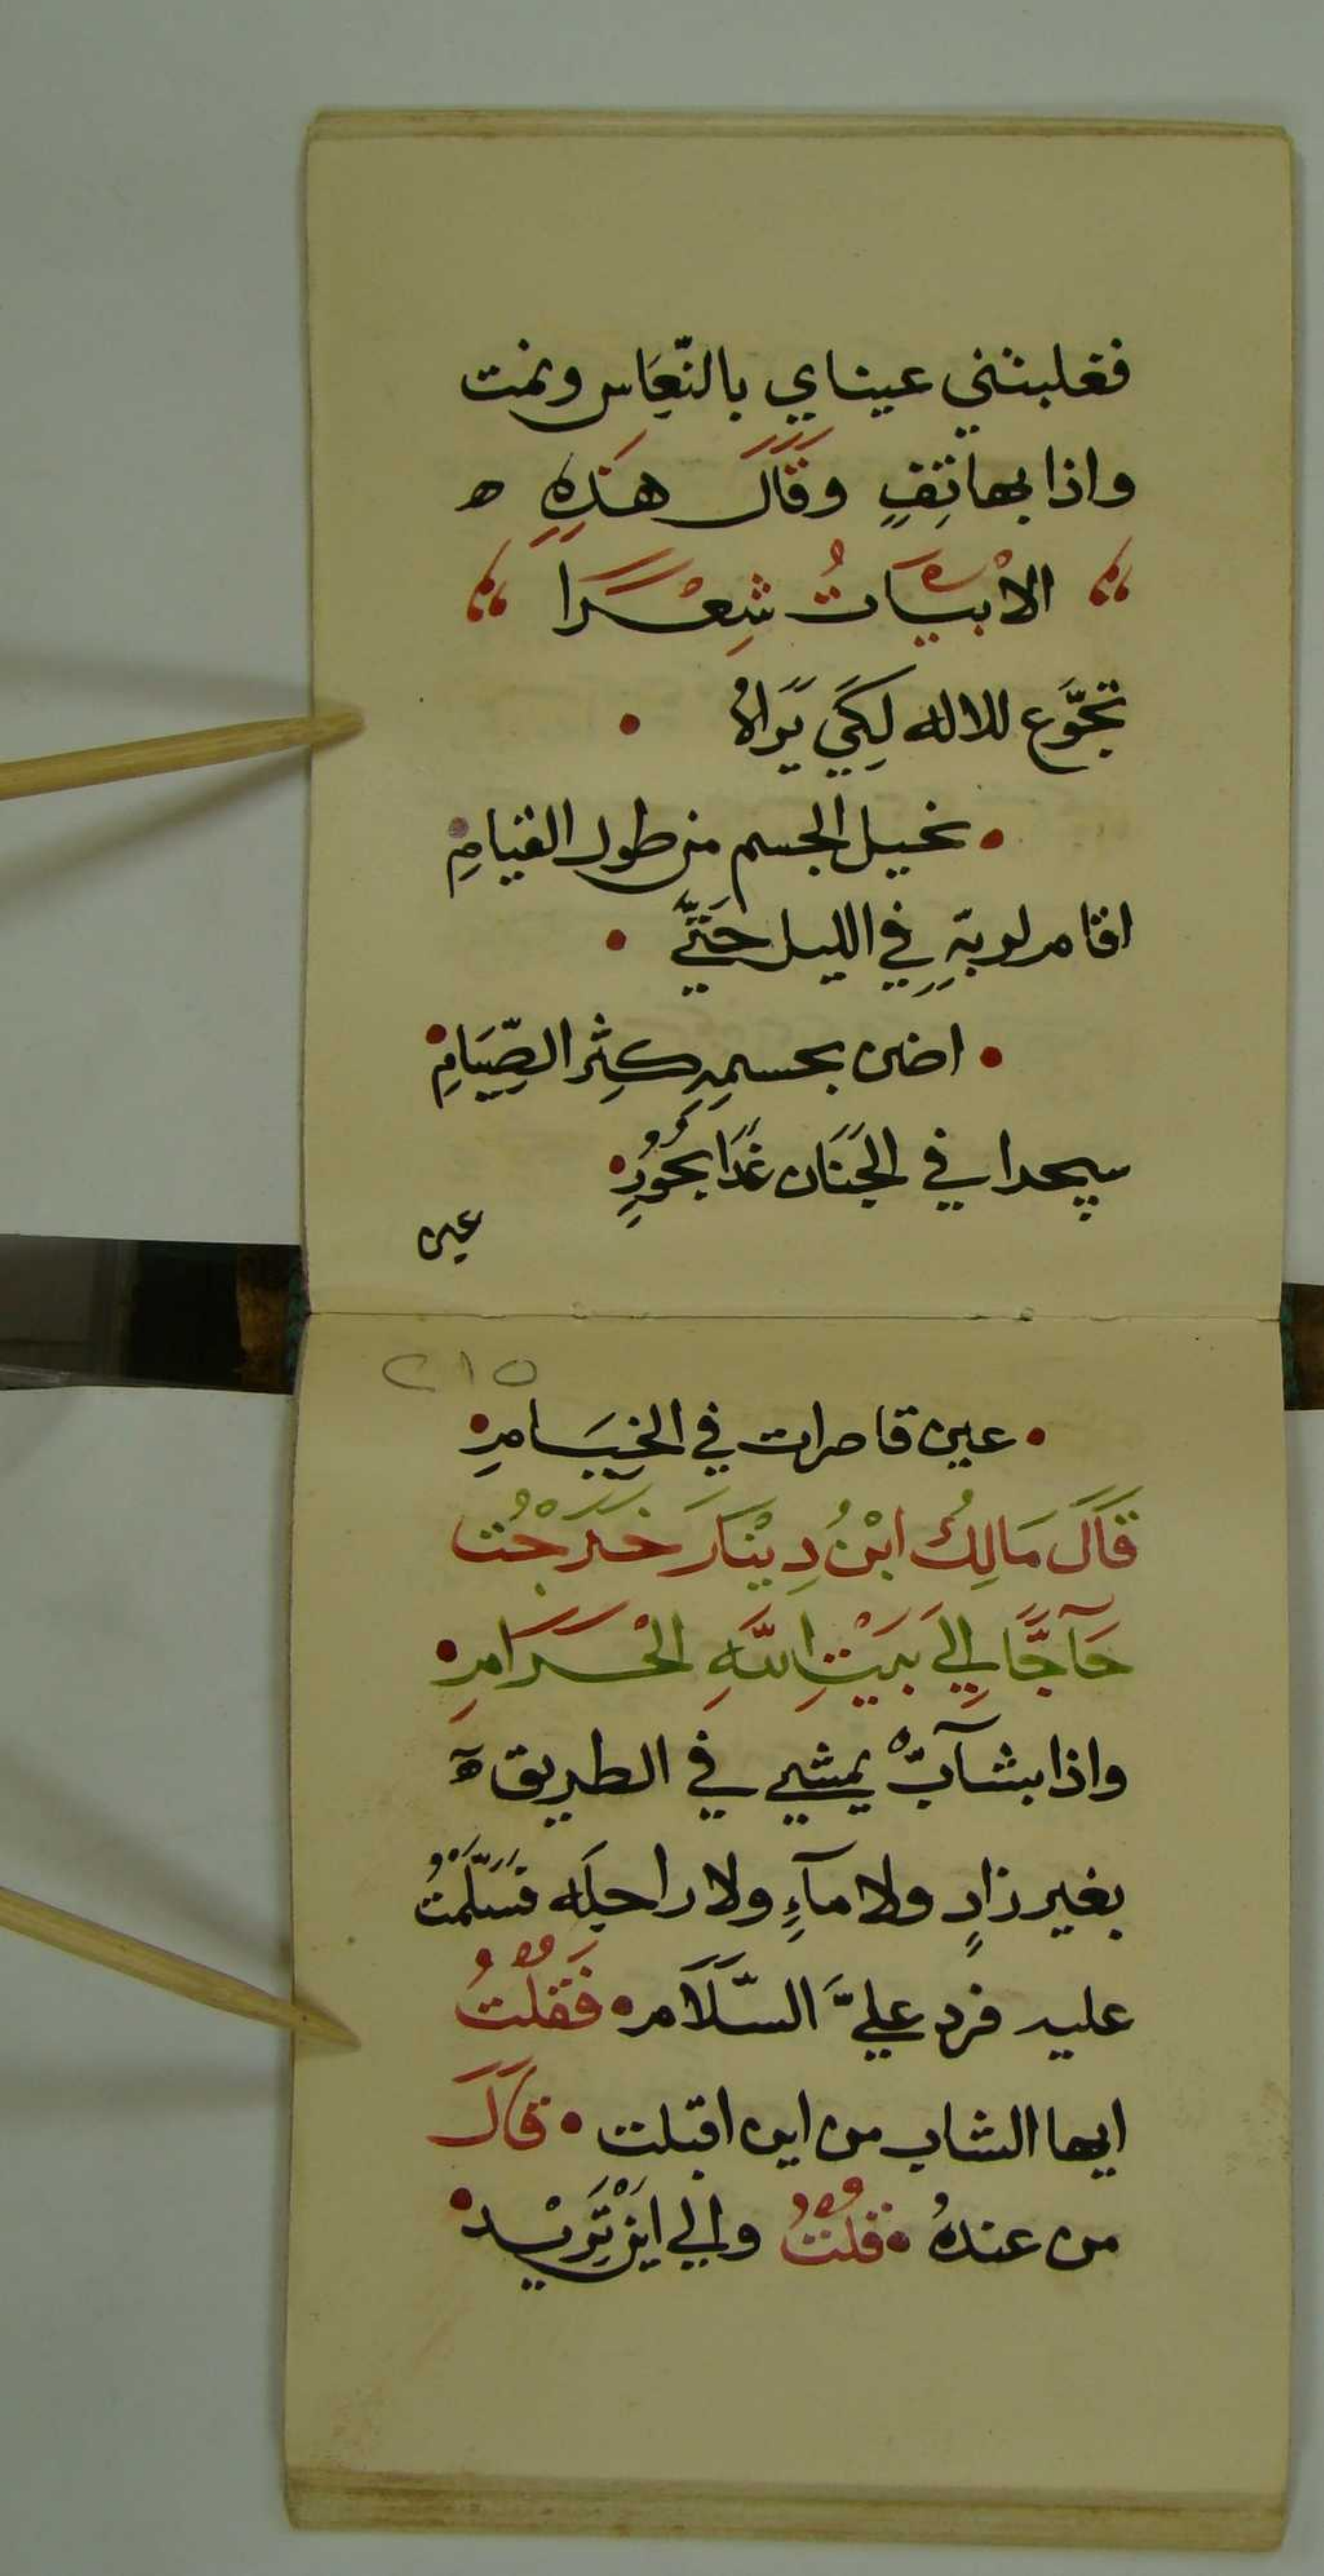 فغلبتني عيناي بالنّعَاس ونمت
واذا بهاتِفٍ وقَالَ هَذِهِ ه
الاْبيَاتُ شِعْرًا
تجَوَّع للاله لِكَي يَراهُ •
• نحيل الجسم من طول القيامِ •
اقام لربّهِ في الليل حَتّي •
• اضني بجسمِهِ كثِر الصِّيَامِ •
سيحدا في الجَنَان غَدًا بحُورٍ •
عين
٢١٥
• عين قاصرات في الخيَامِ •
قَالَ مَالِكُ ابْنُ دِينَار خَرَجْتُ
حَآجًّا اِلَي بَيْتِ اللّهِ الْحَرَامِ •
واذا بشآبّ يمشي في الطريق ه
بغير زادٍ ولا مآءٍ ولا راحِلَه فسَلّمْتُ
عليه فرد عليَّ السَّلَام • فَقُلْتُ
ايها الشاب من اين اقبلت • قَالَ
من عندهُ • قُلْتُ والي اينْ تَرِيْد •